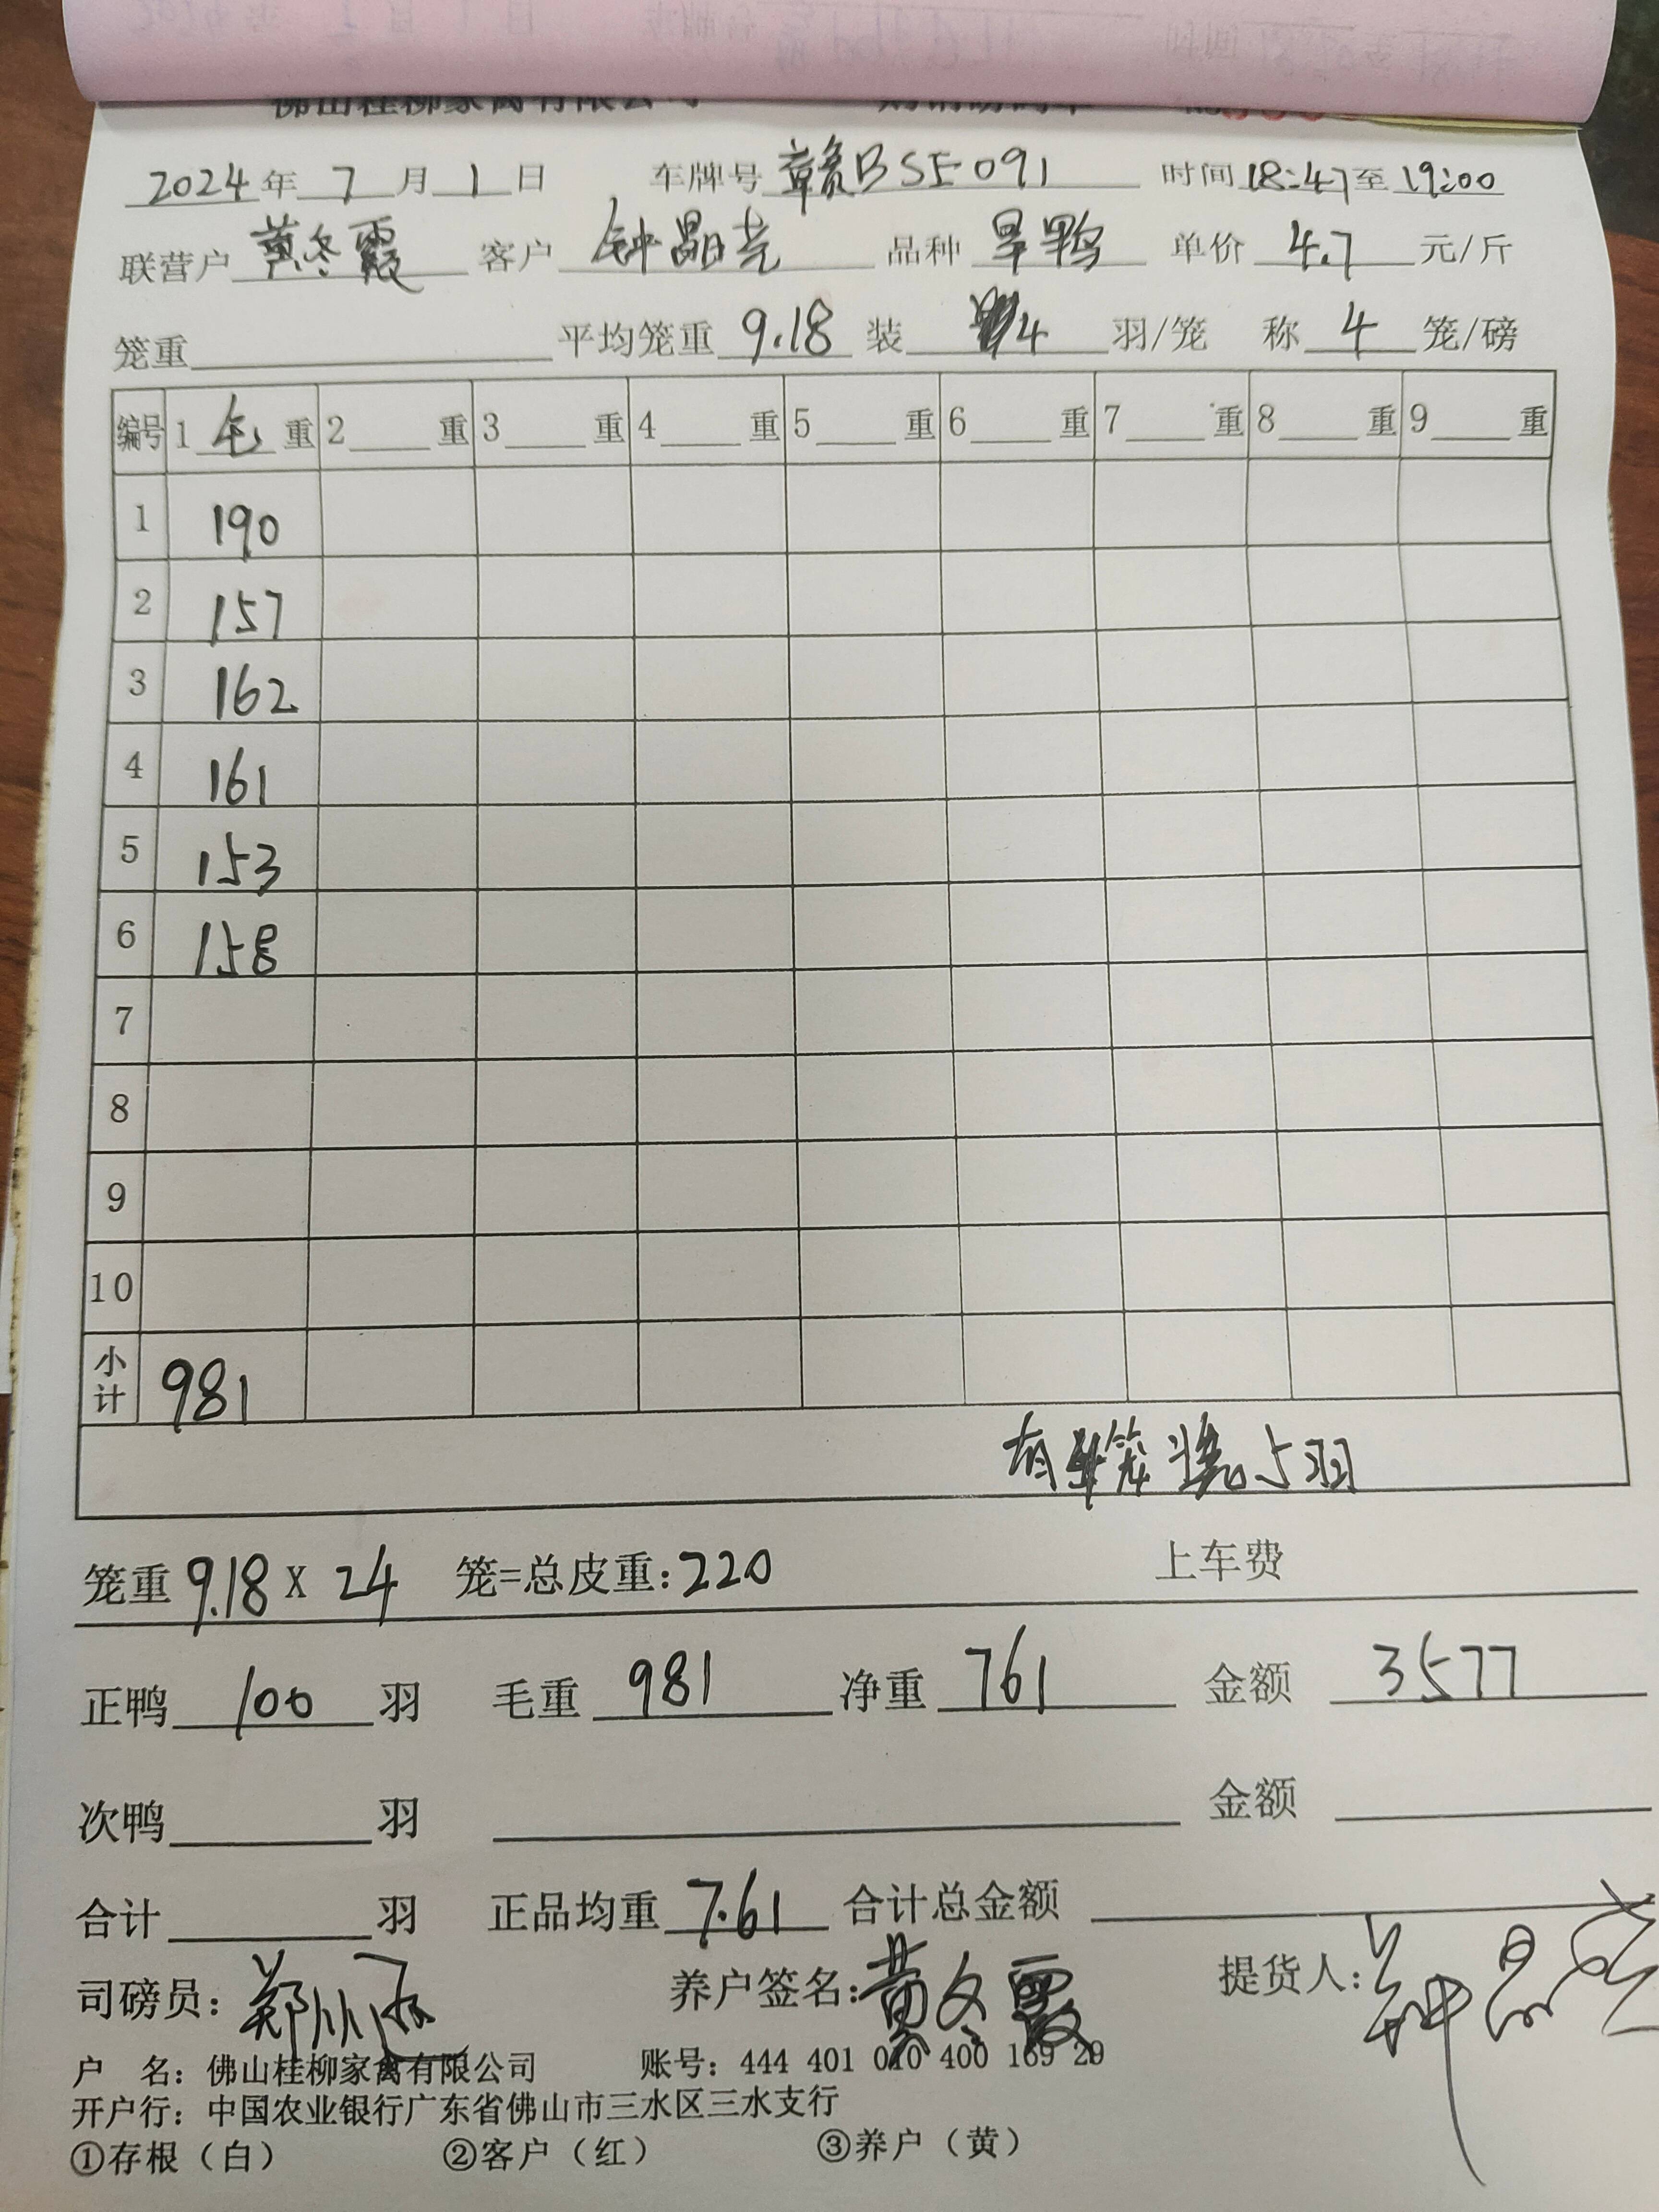 佛山桂柳家禽有限公司
2024年 7 月 1 日 车牌号 赣BSE091 时间 18:47 至 19:00
联营户 黄冬霞 客户 钟晶尧 品种 旱鸭 单价 4.7 元/斤
笼重 平均笼重 9.18 装 4 羽/笼 称 4 笼/磅
编号 1 毛 重 2 重 3 重 4 重 5 重 6 重 7 重 8 重 9 重
1 190
2 157
3 162
4 161
5 153
6 158
7
8
9
10
小计 981
有 笼 装 5羽
笼重 9.18 X 24 笼=总皮重:220 上车费
正鸭 100 羽 毛重 981 净重 761 金额 3577
次鸭 羽 金额
合计 羽 正品均重 7.61 合计总金额
司磅员: 养户签名: 黄冬霞 提货人:
户 名: 佛山桂柳家禽有限公司 账号: 444 401 010 400 169 29
开户行: 中国农业银行广东省佛山市三水区三水支行
①存根（白） ②客户（红） ③养户（黄）